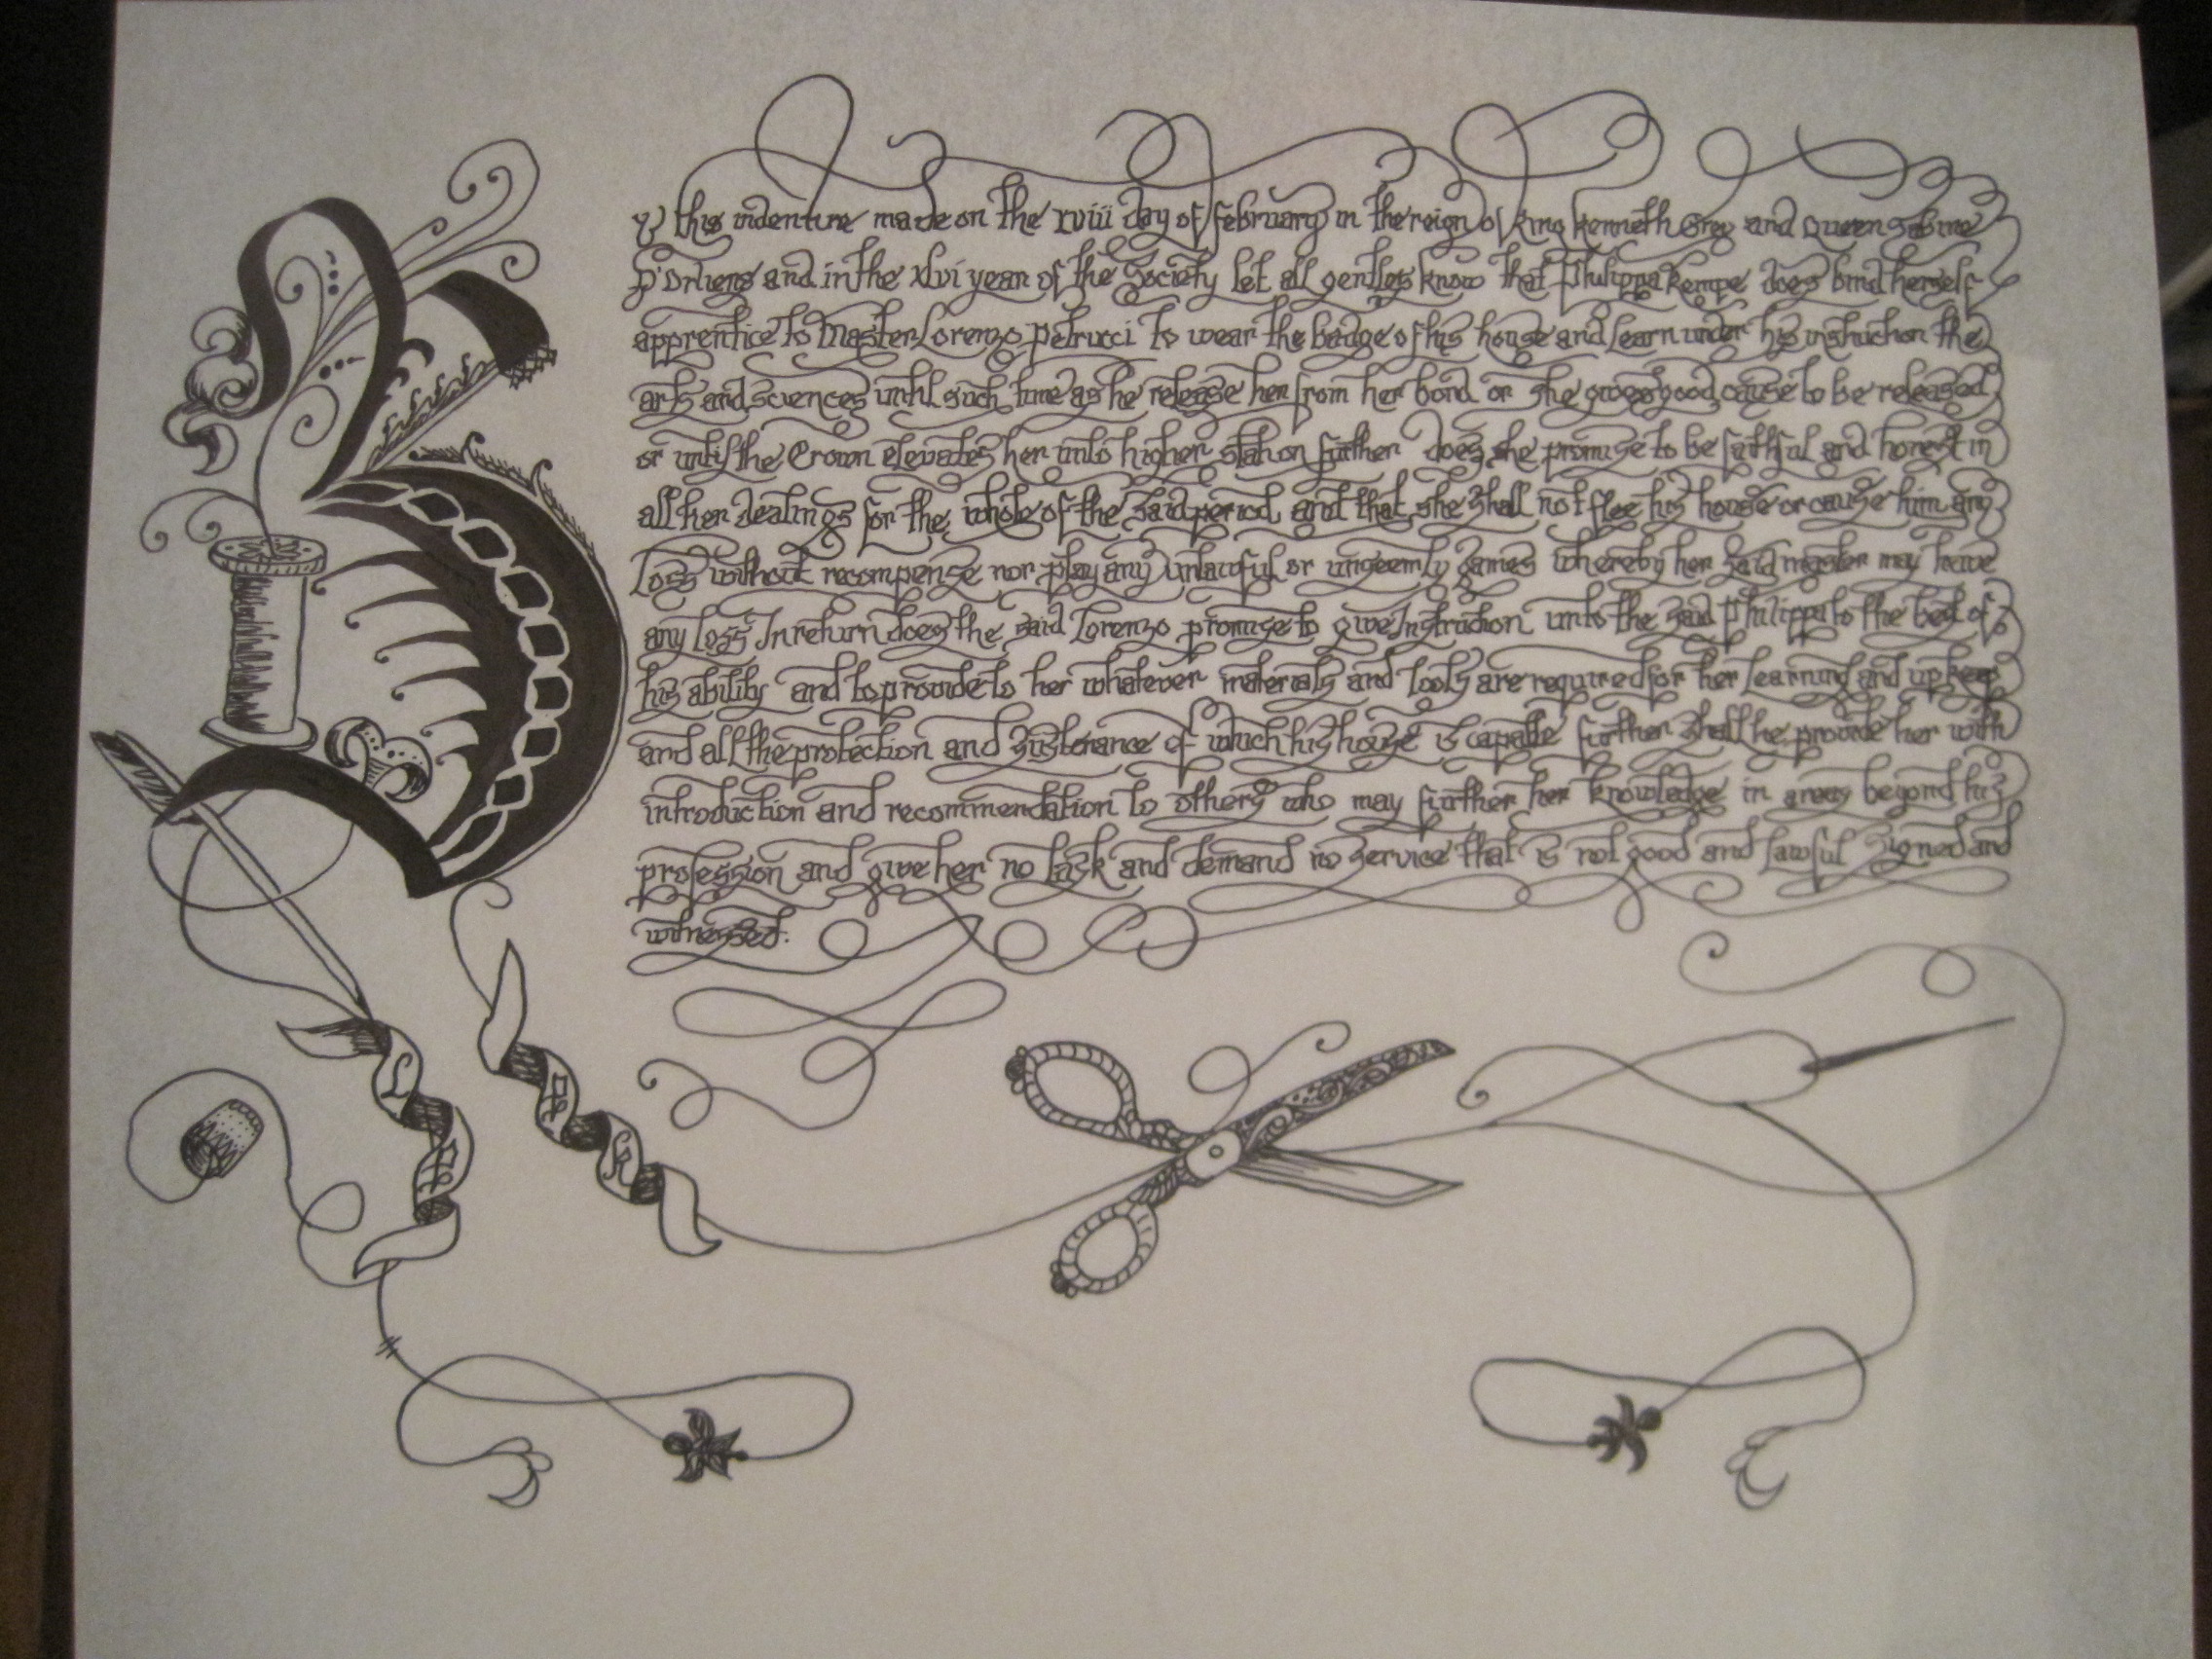 By this indenture made on the xviii day of february in the reign of King Kenneth Grey and Queen Sabine
D'Orliens and in the xlvi year of the Society let all gentles know that Philippa Kempe does bind herself
apprentice to Master Lorenzo Petrucci to wear the badge of his house and Learn under his instruction the
arts and sciences until such time as he release her from her bond or she gives good cause to be released
or until the Crown elevates her unto higher station further does she promise to be faithful and honest in
all her dealings for the whole of the said period and that she shall not flee his house or cause him any
Loss without recompense nor play any unlawful or unseemly games whereby her said master may have
any Loss In return does the said Lorenzo promise to give Instruction unto the said Philippa to the best of
his ability and to provide to her whatever materials and tools are required for her Learning and upkeep
and all the protection and sustenance of which his house is capable further shall he provide her with
introduction and recommendation to others who may further her knowledge in areas beyond his
profession and give her no task and demand no service that is not good and lawful Signed and
witnessed.
L P
P K